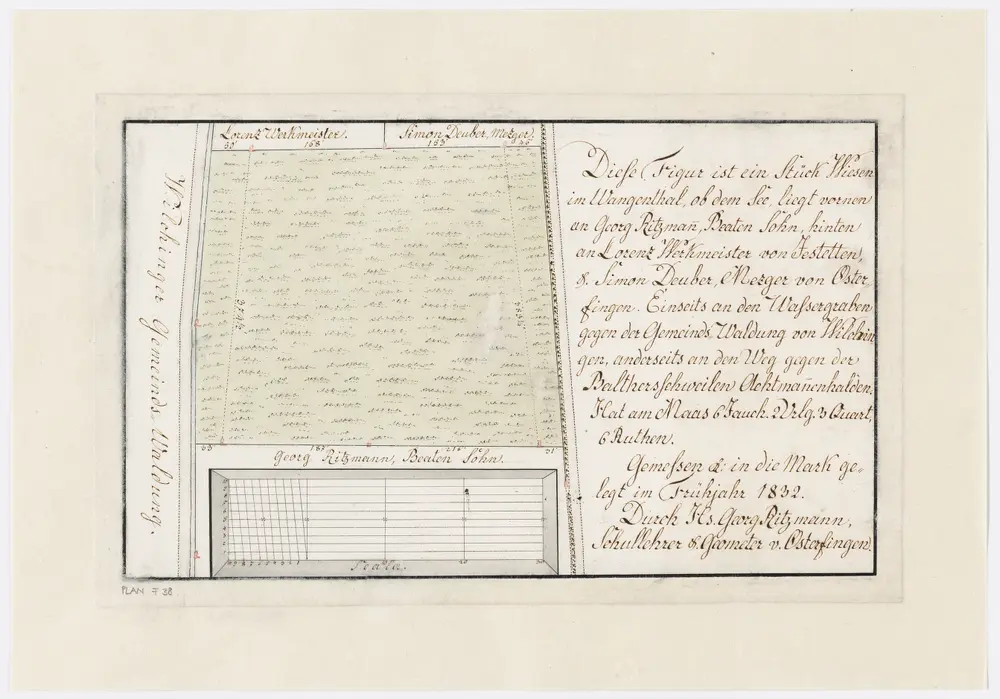 Lorenz Werkmeister.
Simon Deuber, Mezger.
30 168 185 46
Wilchinger Gemeinds Waldung.
33 183 216 31
Georg Ritzmann, Beaten Sohn.
Scala.
Diese Figur ist ein Stück Wiesen
im Wangenthal, ob dem See, liegt vornen
an Georg Ritzman̄, Beaten Sohn, hinten
an Lorenz Werkmeister von Jestetten,
&. Simon Deuber, Mezger von Oster-
fingen. Einseits an den Wassergraben
gegen der Gemeinds Waldung von Wilchin
gen, anderseits an den Weg gegen der
Baltherschweilen Achtman̄enhalden.
Hat am Maas 6 Jauch. 2 Vrlg. 3 Quart,
6 Ruthen.
Gemessen &: in die Mark ge-
legt im Frühjahr 1832.
Durch Hs. Georg Ritzmann,
Schullehrer &. Geometer v. Osterfingen.
PLAN F 38